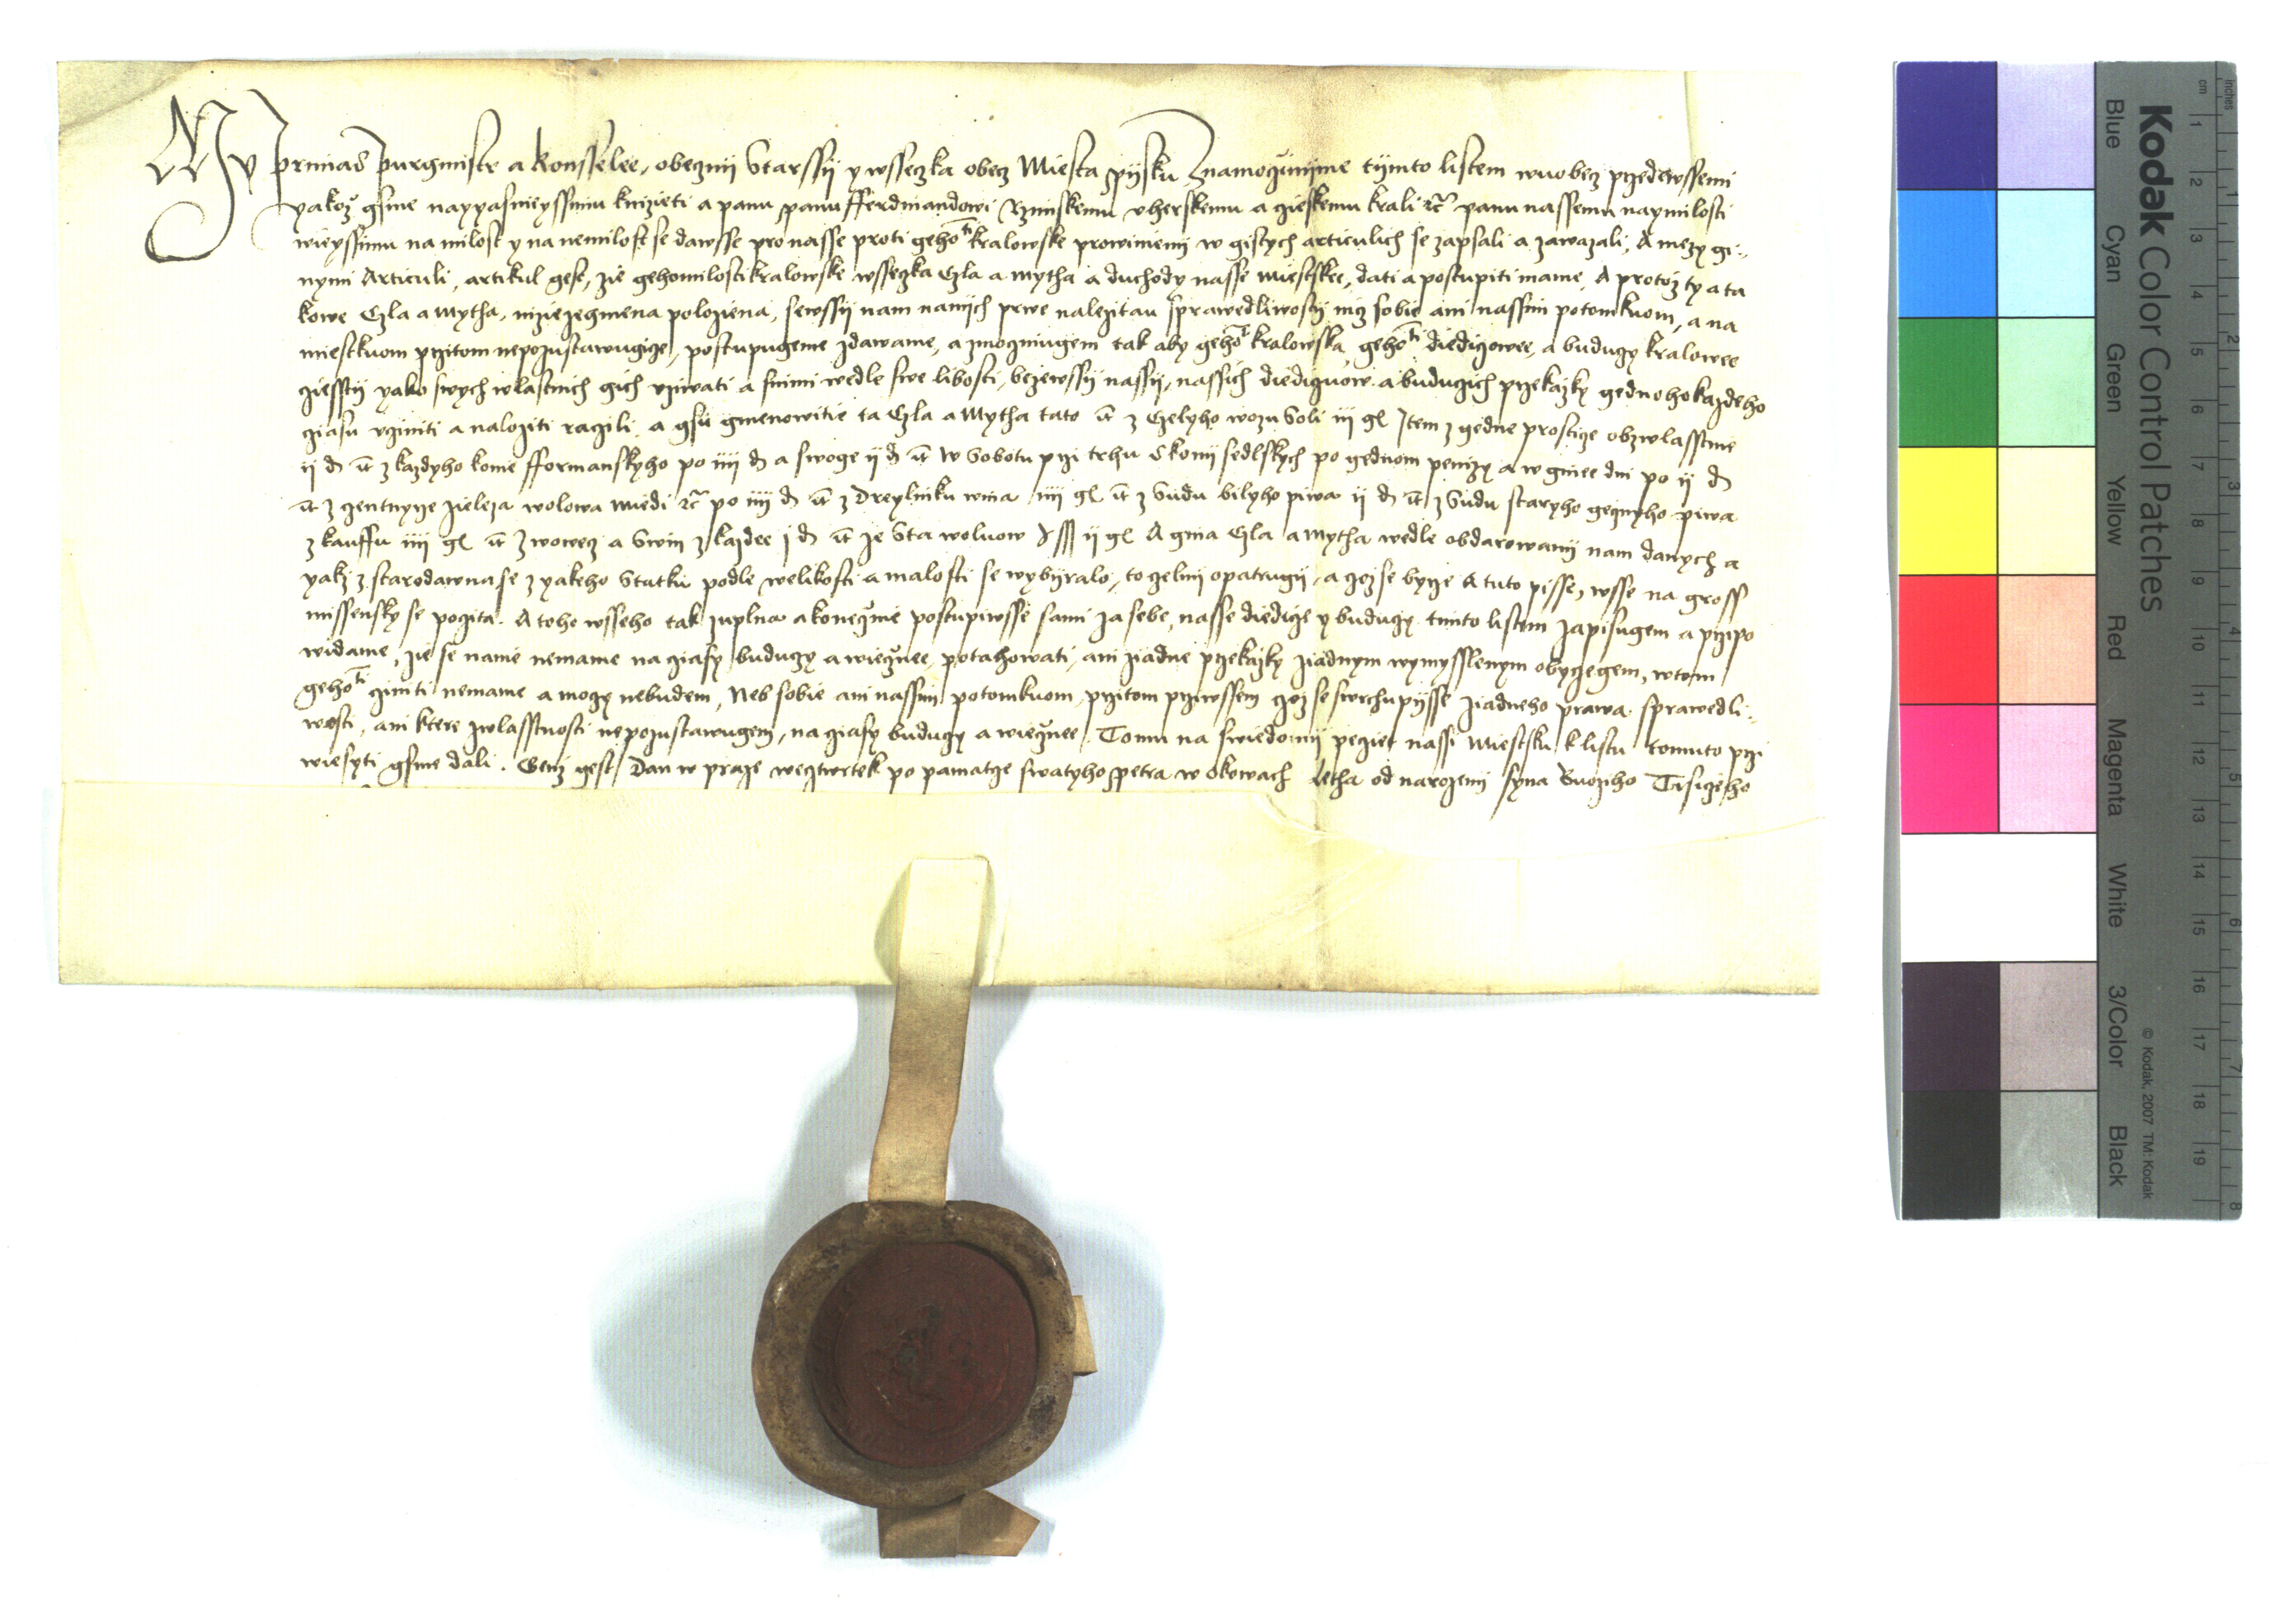 My primas purgmistr a konsselee, obecznij Starssij y wsseczka obecz Miesta pijsku Znamo cziinijme tijmto listem wuobecz przedewssemi
yakoz gsme nayyasnieyssimu knizieti a panu panu fferdinandowi Rzimskemu vherskemu a czeskemu krali panu nassemu naymilosti
wieyssimu na milost y na nemilost se dawsse pro nasse proti geho kralowske prowinieni w gistych articulich se zapsali a zawazali, A mezy gi-
nymi Articuli, artikul gest, zie geho milosti kralowske wsseczka Czla a Mytha a duchody nasse miestskee, dati a postupiti mame, A protoz ty a ta
kowe Czla a Mytha, niziezegmena poloziena, sewssij nam nanijch prwe nalezitau sprawedliwostij nicz sobie ani nassim potomkuom, a na
miestkuom przitom nepozustawugicze, postupugeme zdawame, a zmoczniugem tak aby geho kralowska geho diediczowee, a buduczy kralowee
czesstij yako swych wlastnich gich vziwati a snimi wedle swe libosti, bezewssij nassij, nassich diediczuow a buduczich przekazky gednoho kazdeho
cziasu vcziniti a naloziti raczili, a gsu gmenowitie ta Czla a Mytha tato it z Czelyho wozu Soli iij gl Item z gedne prosticze obzwlasstnie
ij d it z kazdyho konie fformanskyho po iiij d a swoge ij d it W Sobotu przi trhu Skonij sedlskych po gednom penizy a w ginee dni po ij d
it z czentnyrze zieleza wolowa miedi po iiij d it z Dreylinku wina iiij gl it z Sudu bilyho piwa ij d it z Sudu staryho gecznyho piwa
z kauffu iiij gl it z wowecz a Swin z kazdee j d it ze Sta woluow ij gl A gina Czla a Mytha wedle obdarowanij nam danych a
yakz z starodawna se z yakeho Statku podle welikosti a malosti se wybijralo, to czelnij opatrugij, a czoz se bycze A tuto pisse, wsse na gross
missensky se poczita. A toho wsseho tak zuplna a konecznie postupiwsse sami za sebe, nasse diedicze y buduczy timto listem zapisugem a przipo
widame, zie se nanie nemame na cziasy buduczy a wiecznee, potahowati, ani ziadne przekazky ziadnym wymysslenym obyczegem, wtom
geho cziniti nemame a moczy nebudem, Neb sobie ani nassim potomkuom, przitom przewssem czoz se swrchu pijsse ziadneho prawa sprawedli-
wosti, ani ktere zwlasstnosti nepozustawugem, na cziasy buduczy a wiecznee. Tomu na swiedomij peczet nassi Miestsku k listu tomuto przi
wiesyti gsme dali. Genz gest Dan w praze wecztwrtek po pamatcze swatyho petra w okowach letha od narozenij syna Buoziho Tisiczeho
Kodak Color Control Patches
Blue Cyan Green Yellow Red Magenta White 3/Color Black
© Kodak, 2007 TM: Kodak
inches 1 2 3 4 5 6 7 8
cm 1 2 3 4 5 6 7 8 9 10 11 12 13 14 15 16 17 18 19